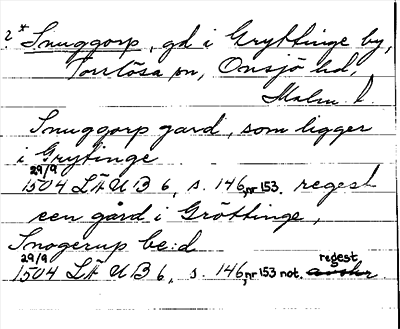 ?* Snuggorp, gd i Gryttinge by,
Torrlösa sn, Onsjö hd,
Malm. l.
Snuggorp gard, som ligger
i Grytinge
29/9
1504 LÄUB 6, s. 146, nr 153. regest
een gård i Gröttinge,
Snogerup be:d
29/9 regest
1504 LÄUB 6, s. 146, nr 153 not.